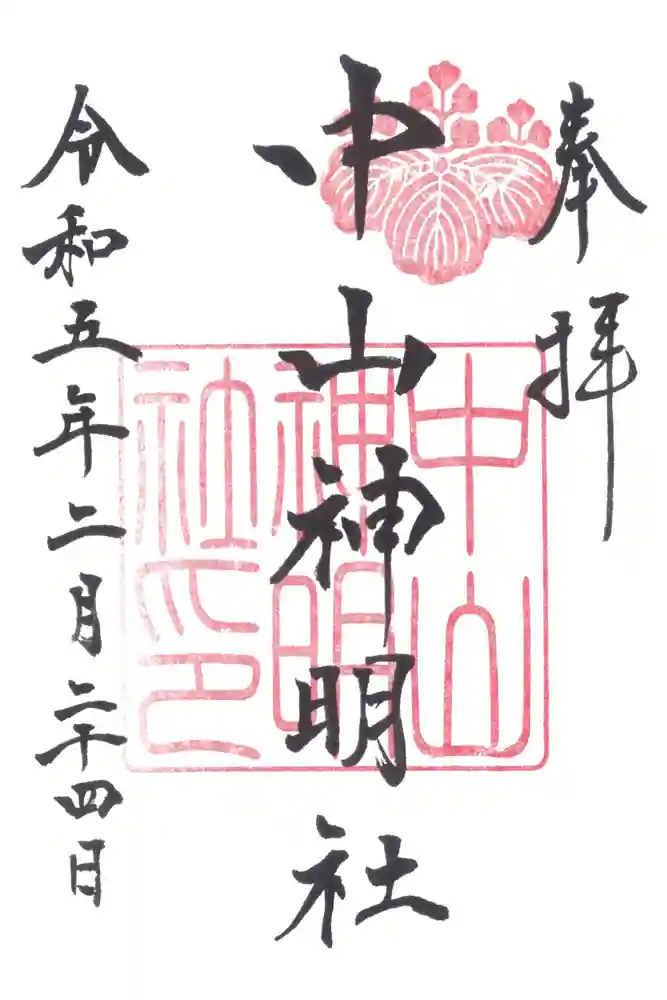 奉拝
中山神明社
中山
神明
社印
令和五年二月二十四日